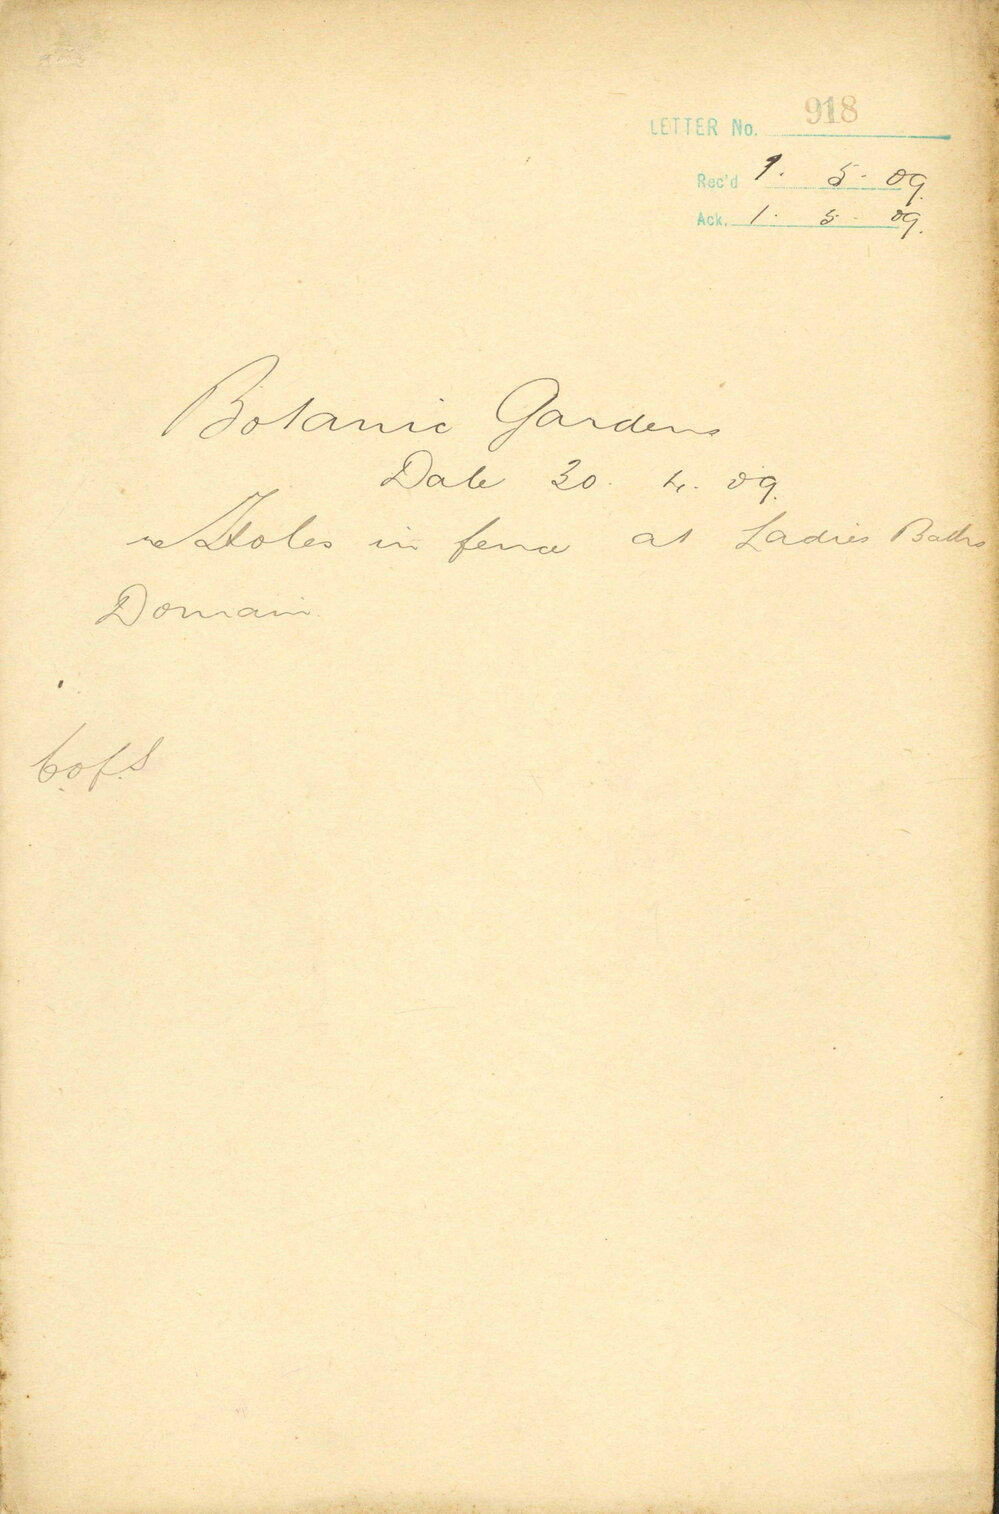 LETTER No. 918
Rec'd 1. 5. 09.
Ack. 1. 5. 09.
Botanic Gardens
Date 30. 4. 09.
re Holes in fence at Ladies Baths
Domain.
C.of.S